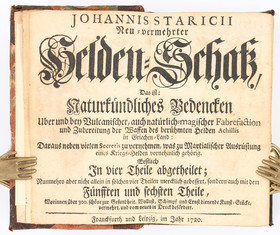 JOHANNIS STARICII
Neu-vermehrter
Helden-Schatz,
Das ist:
Naturkündliches Bedencken
Uber und bey Vulcanischer, auch natürlich-magischer Fabrefaction
und Zubereitung der Waffen des berühmten Helden Achillis
in Griechen-Land;
Daraus neben vielen Secretis zu vernehmen, was zu Martialischer Ausrüstung
eines Kriegs-Helden vornehmlich gehörig.
Erstlich
In vier Theile abgetheilet;
Nunmehro aber nicht allein in solchen vier Theilen mercklich gebessert, sondern auch mit dem
Fünfften und sechsten Theile,
Worinnen über 300. schöne zur Gesundheit, Wollust, Schimpf und Ernst dienende Kunst-Stücke,
vermehrt, und in Druck befördert.
Franckfurth und Leipzig, im Jahr 1720.